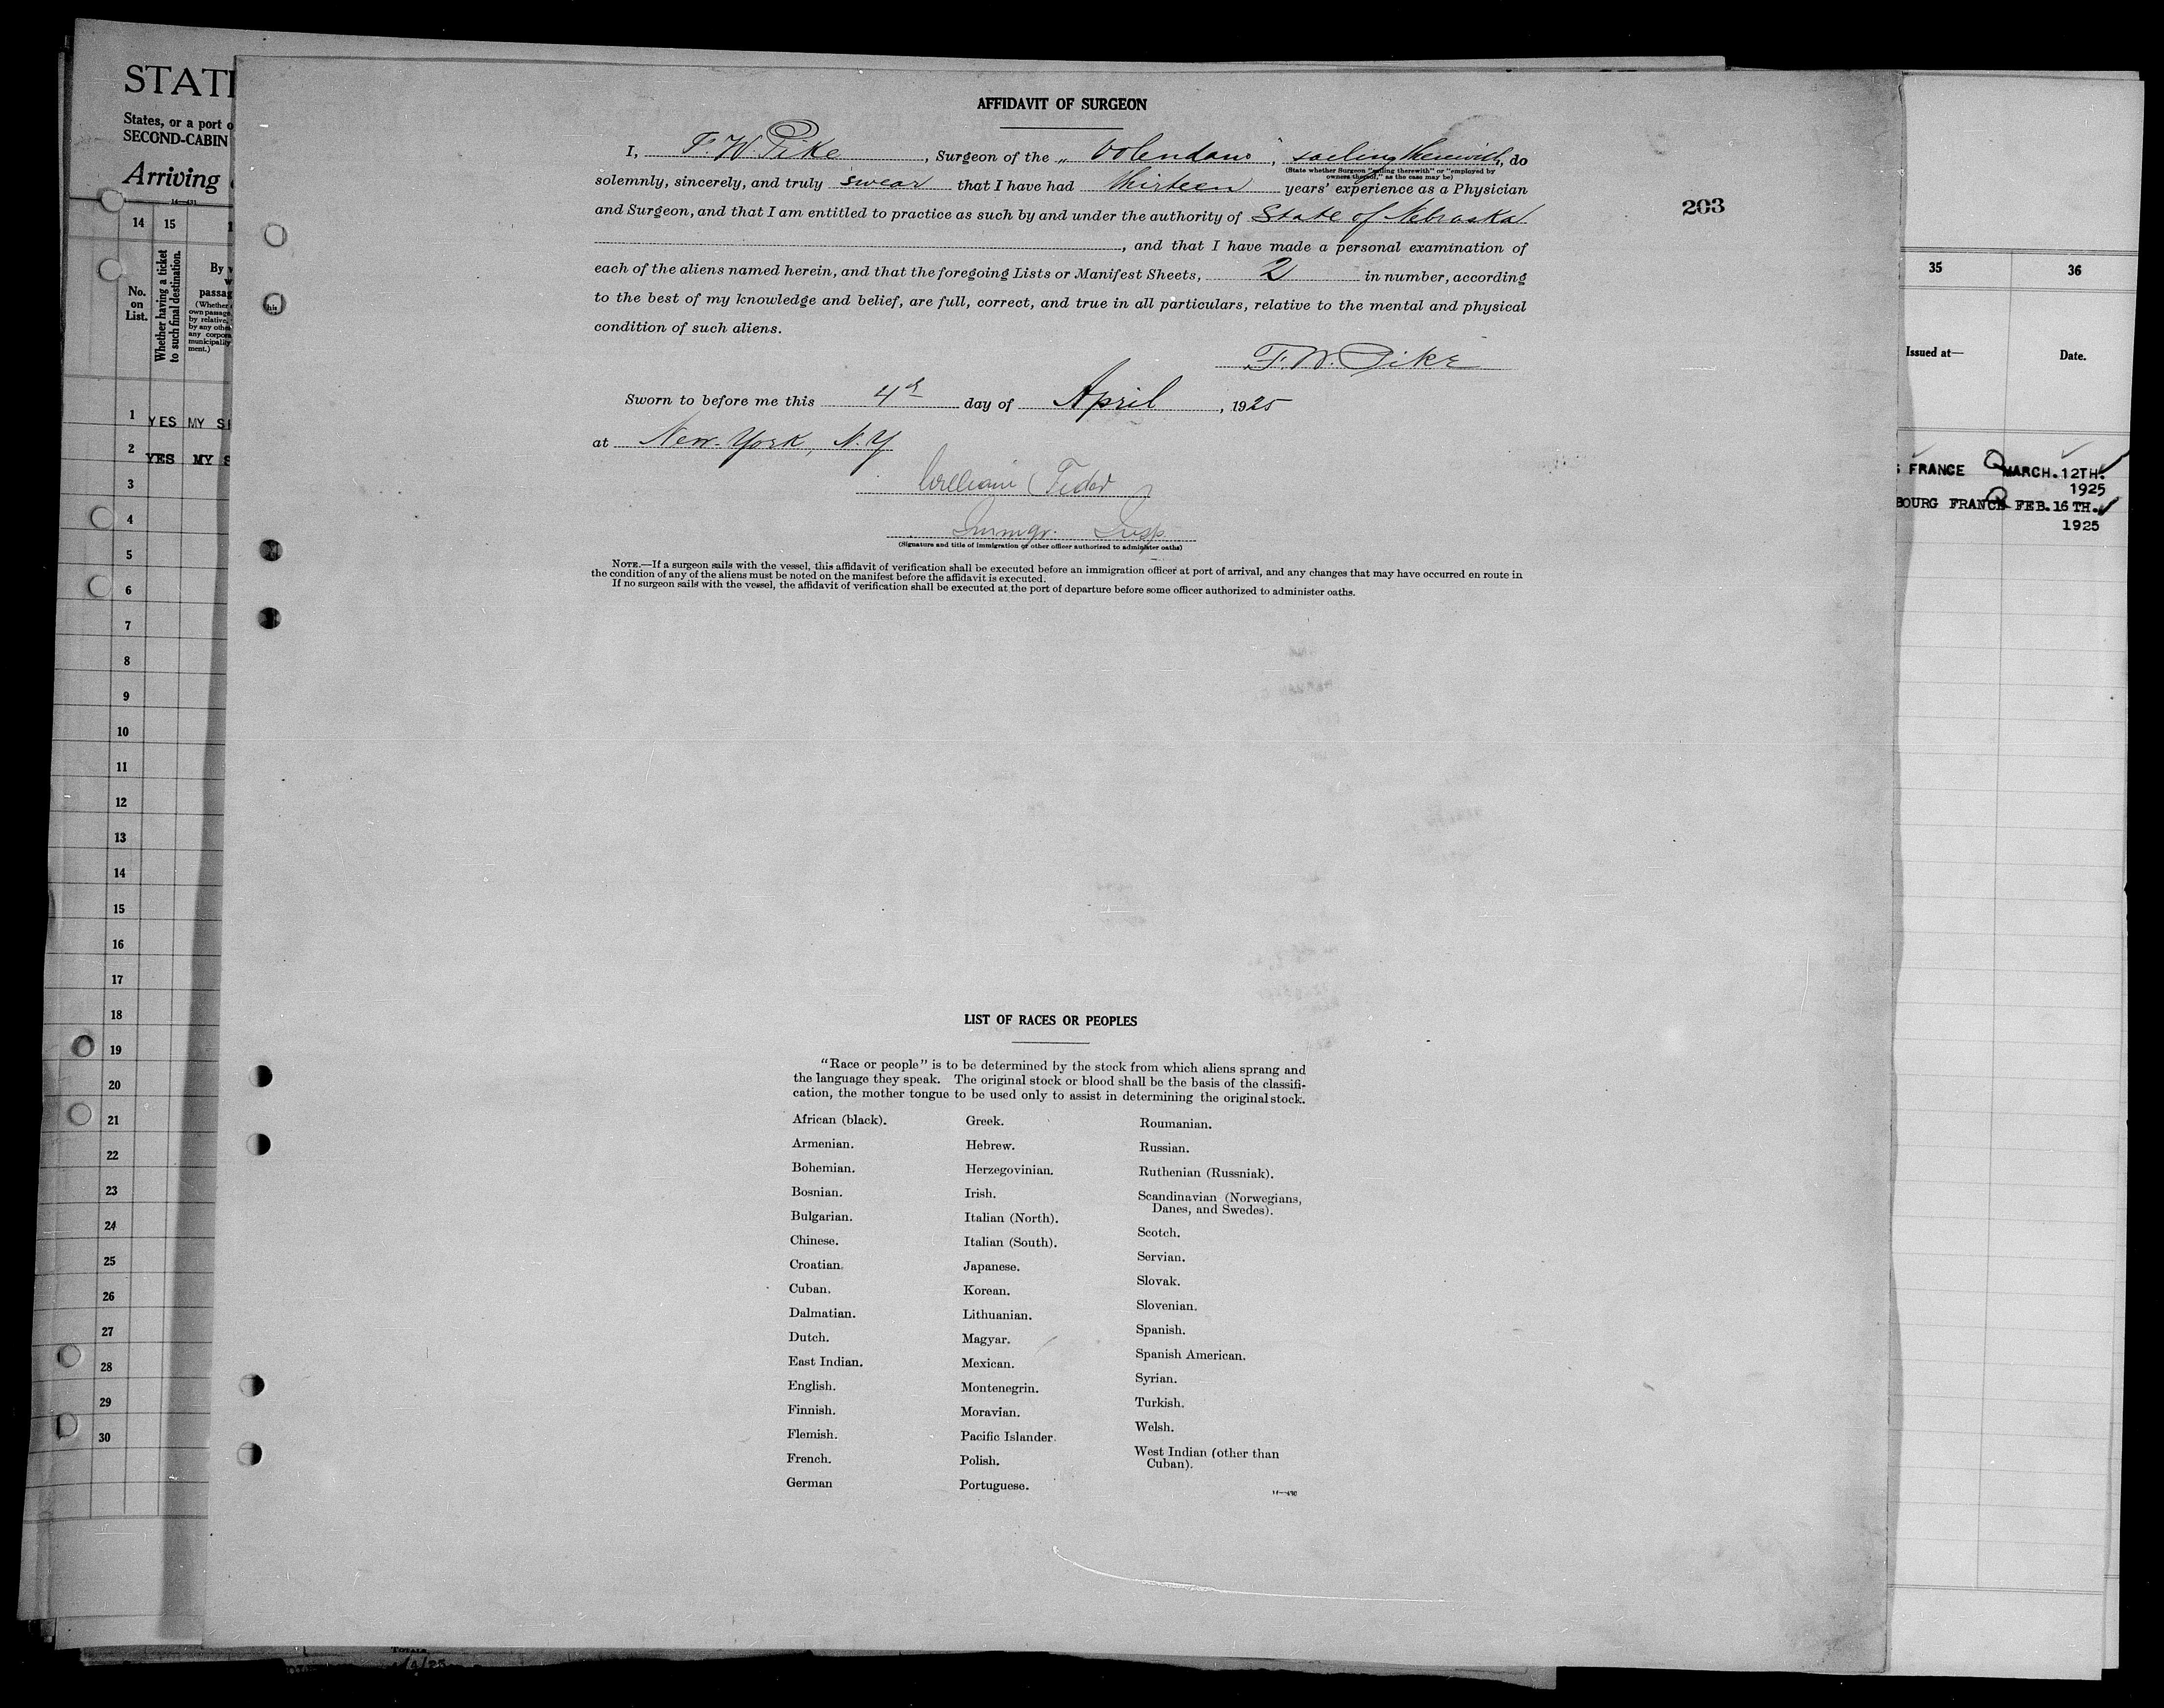 AFFIDAVIT OF SURGEON
I, F. W. Pike, Surgeon of the „Volendam", sailing therewith, do
(State whether Surgeon "sailing therewith" or "employed by
owners thereof," as the case may be)
solemnly, sincerely, and truly swear that I have had thirteen years' experience as a Physician
and Surgeon, and that I am entitled to practice as such by and under the authority of State of Nebraska
, and that I have made a personal examination of
each of the aliens named herein, and that the foregoing Lists or Manifest Sheets, 2 in number, according
to the best of my knowledge and belief, are full, correct, and true in all particulars, relative to the mental and physical
condition of such aliens.
F. W. Pike
Sworn to before me this 4th day of April, 1925
at New-York, N.Y
William
Immgr. Insp.
(Signature and title of immigration or other officer authorized to administer oaths)
NOTE.—If a surgeon sails with the vessel, this affidavit of verification shall be executed before an immigration officer at port of arrival, and any changes that may have occurred en route in
the condition of any of the aliens must be noted on the manifest before the affidavit is executed.
If no surgeon sails with the vessel, the affidavit of verification shall be executed at the port of departure before some officer authorized to administer oaths.
203
LIST OF RACES OR PEOPLES
"Race or people" is to be determined by the stock from which aliens sprang and
the language they speak. The original stock or blood shall be the basis of the classifi-
cation, the mother tongue to be used only to assist in determining the original stock.
African (black).
Armenian.
Bohemian.
Bosnian.
Bulgarian.
Chinese.
Croatian.
Cuban.
Dalmatian.
Dutch.
East Indian.
English.
Finnish.
Flemish.
French.
German
Greek.
Hebrew.
Herzegovinian.
Irish.
Italian (North).
Italian (South).
Japanese.
Korean.
Lithuanian.
Magyar.
Mexican.
Montenegrin.
Moravian.
Pacific Islander.
Polish.
Portuguese.
Roumanian.
Russian.
Ruthenian (Russniak).
Scandinavian (Norwegians,
Danes, and Swedes).
Scotch.
Servian.
Slovak.
Slovenian.
Spanish.
Spanish American.
Syrian.
Turkish.
Welsh.
West Indian (other than
Cuban).
STAT
States, or a port o
SECOND-CABIN
Arriving
14—431
14 15
No.
on
List.
Whether having a ticket
to such final destination.
By w
passag
(Whether
own passage,
by relative,
by any othe
any corpora
municipality
ment.)
1 YES MY S
2 YES MY S
3
4
5
6
7
8
9
10
11
12
13
14
15
16
17
18
19
20
21
22
23
24
25
26
27
28
29
30
35 36
Issued at— Date.
FRANCE MARCH.12TH.
1925
BOURG FRANCE FEB.16TH.
1925
TOTALS